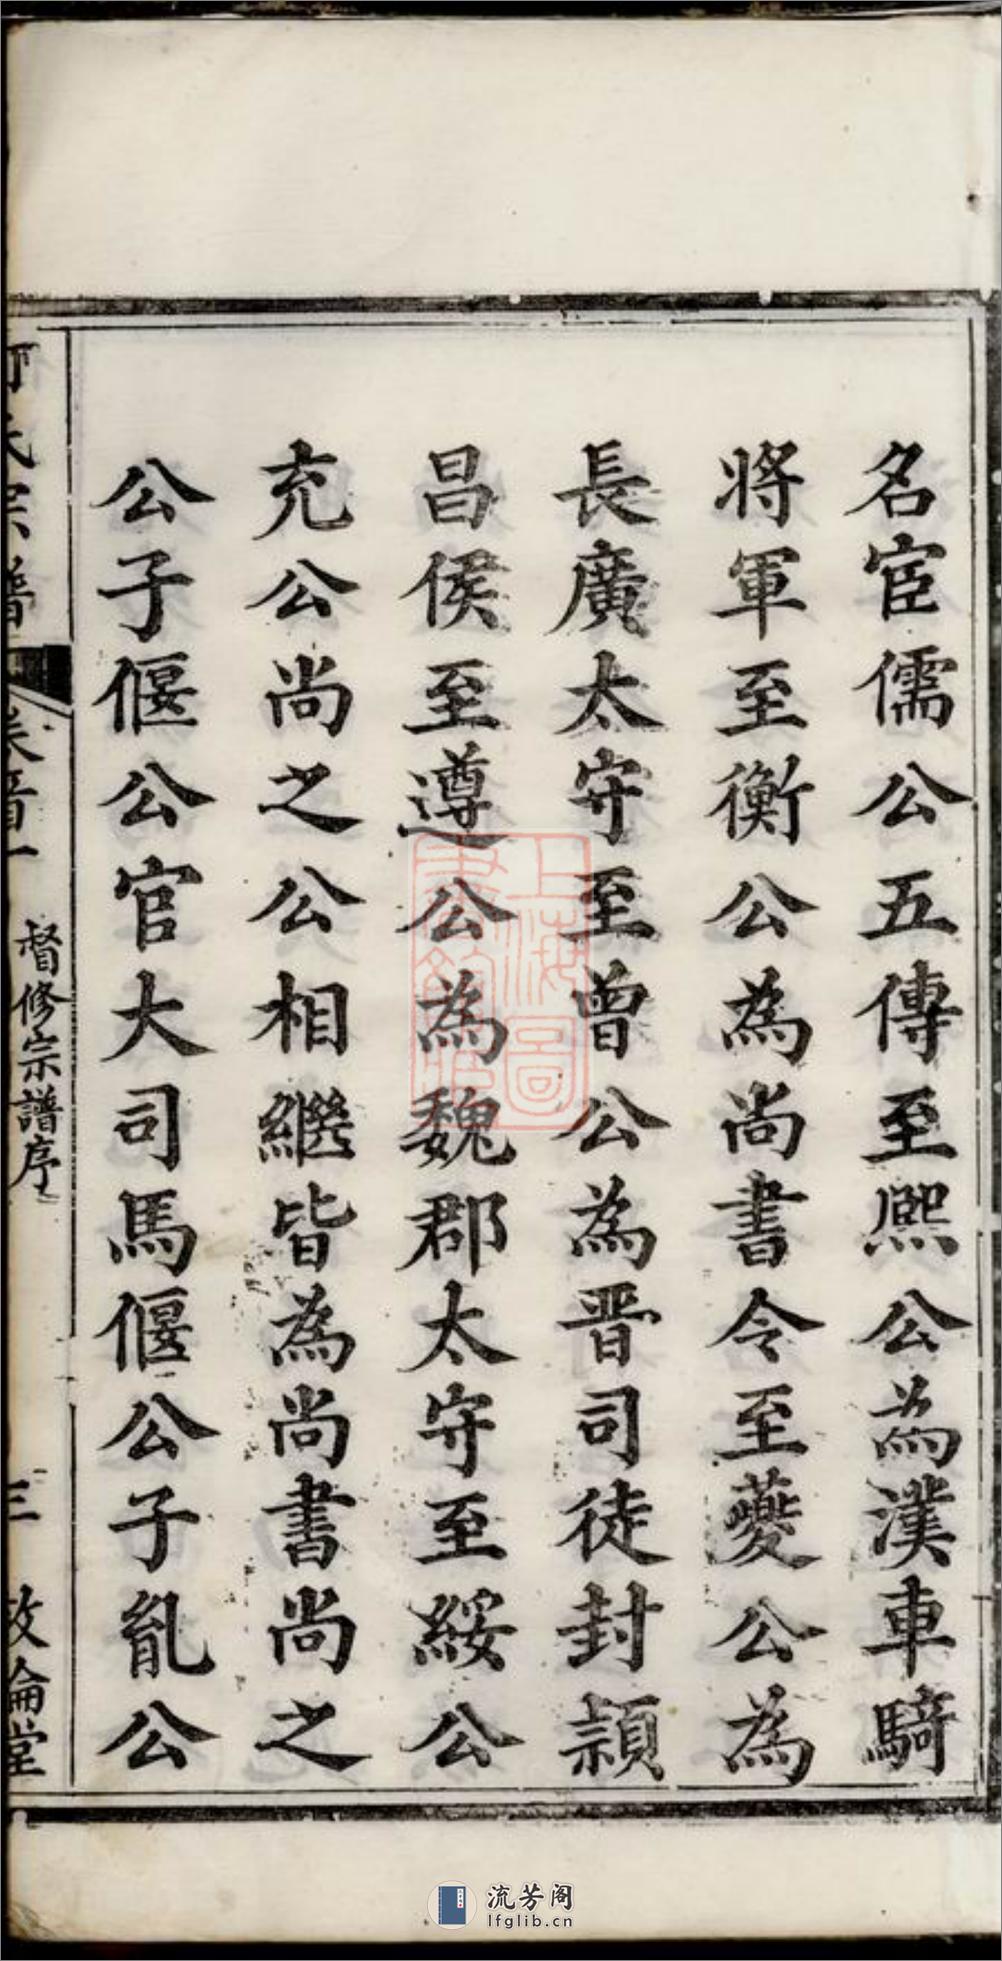 名宦儒公五傳至熈公為漢車騎
將軍至衡公為尚書令至夔公為
長廣太守至曾公為晋司徒封頴
昌侯至遵公為魏郡太守至綏公
充公尚之公相繼皆為尚書尚之
公子偃公官大司馬偃公子胤公
氏宗譜
卷首一
督修宗譜序
三
敦倫堂
上海圖書館藏
流芳阁
lfglib.cn